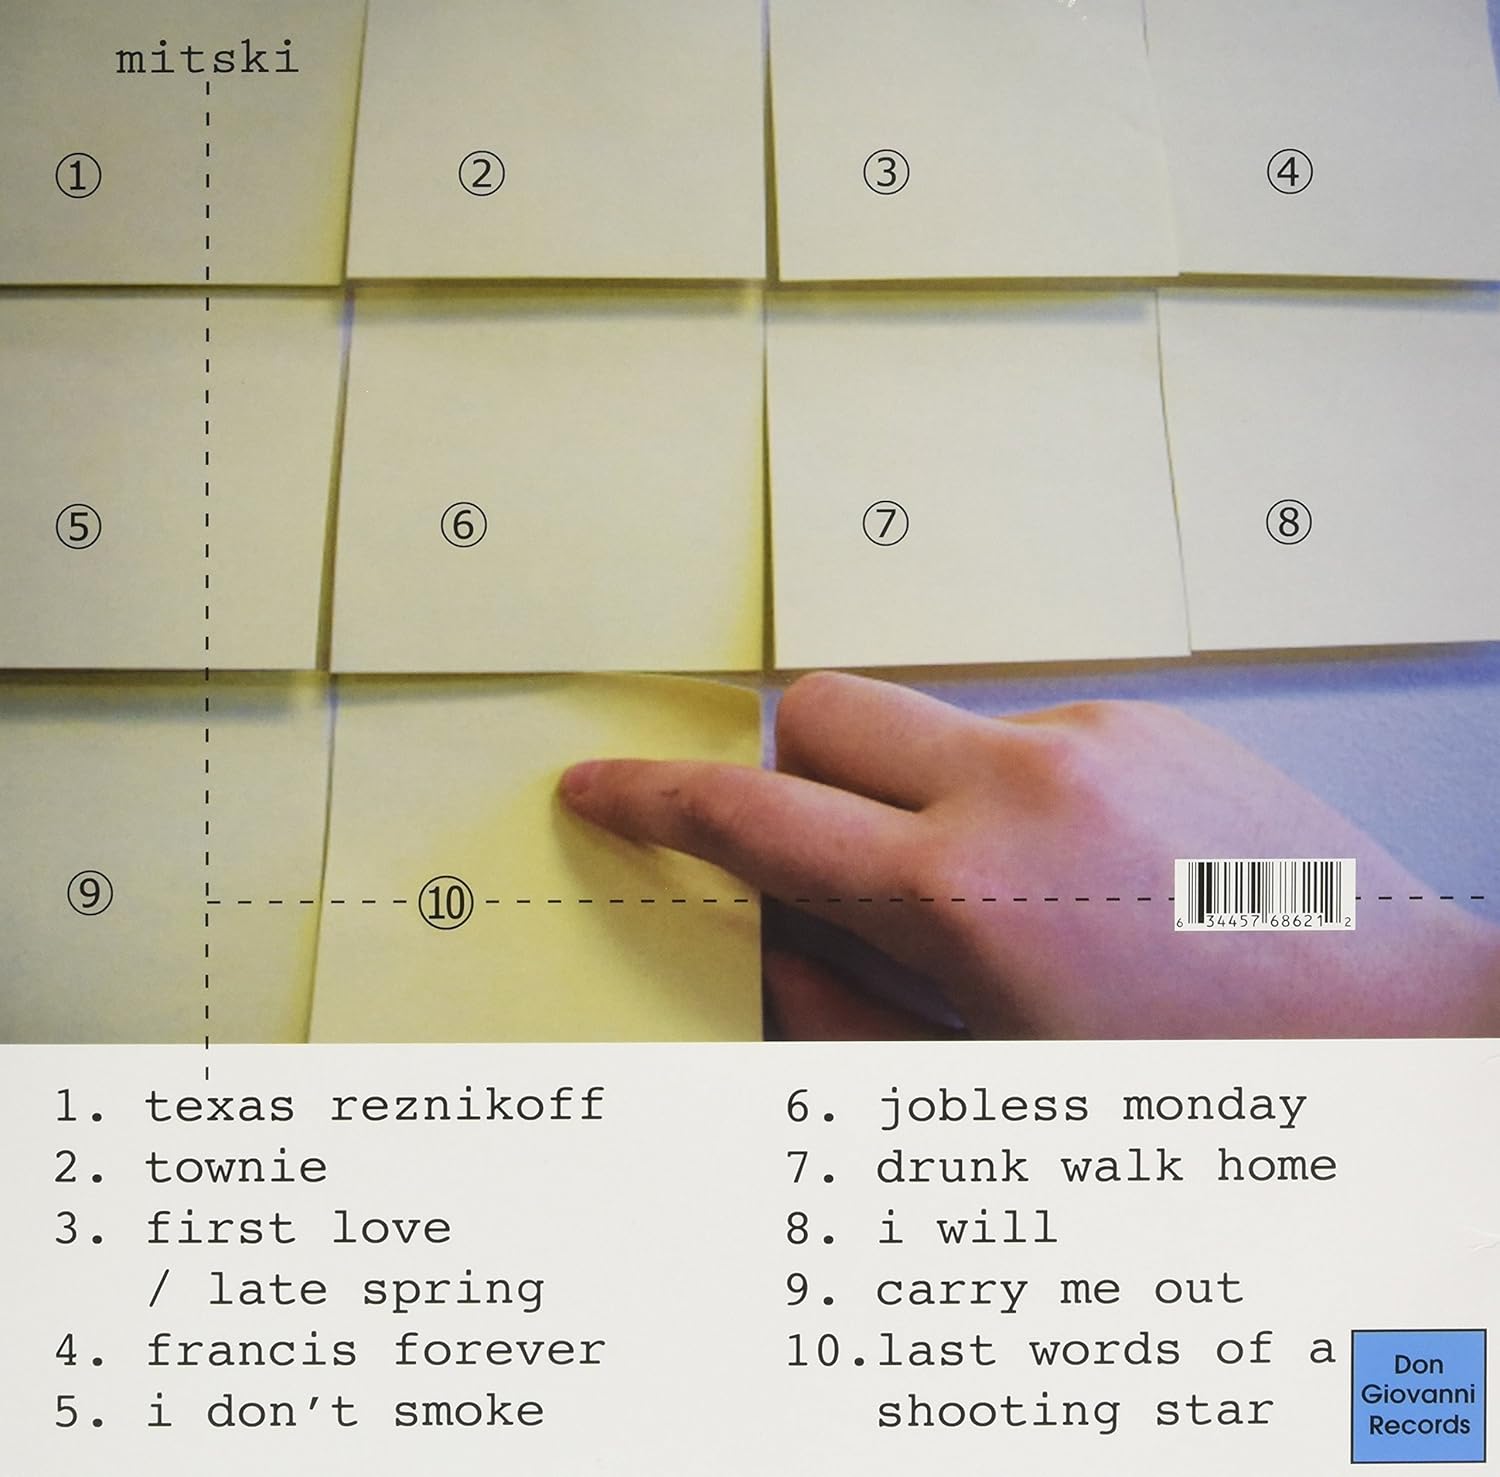 mitski
① ② ③ ④
⑤ ⑥ ⑦ ⑧
⑨ ⑩
6 34457 68621 2
1. texas reznikoff
2. townie
3. first love
/ late spring
4. francis forever
5. i don't smoke
6. jobless monday
7. drunk walk home
8. i will
9. carry me out
10.last words of a
shooting star
Don
Giovanni
Records